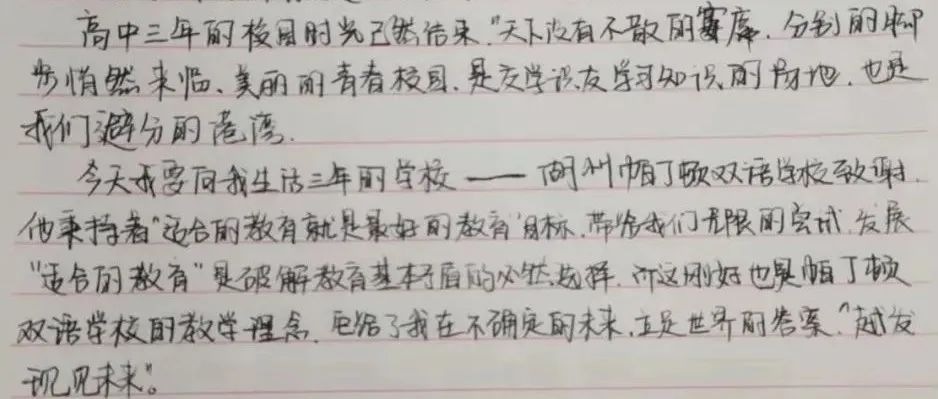 高中三年的校园时光已然结束.“天下没有不散的宴席.分别的脚
步悄然来临、美丽的青春校园.是交学识友学习知识的场地.也是
我们避分的港湾.
今天我要向我生活三年的学校——湖州帕丁顿双语学校致谢.
他秉持着“适合的教育就是最好的教育”目标.带给我们无限的尝试.发展
“适合的教育”是破解教育基本矛盾的必然选择.而这刚好也是帕丁顿
双语学校的教学理念.它给了我在不确定的未来.立足世界的答案.“越发
现见未来”。